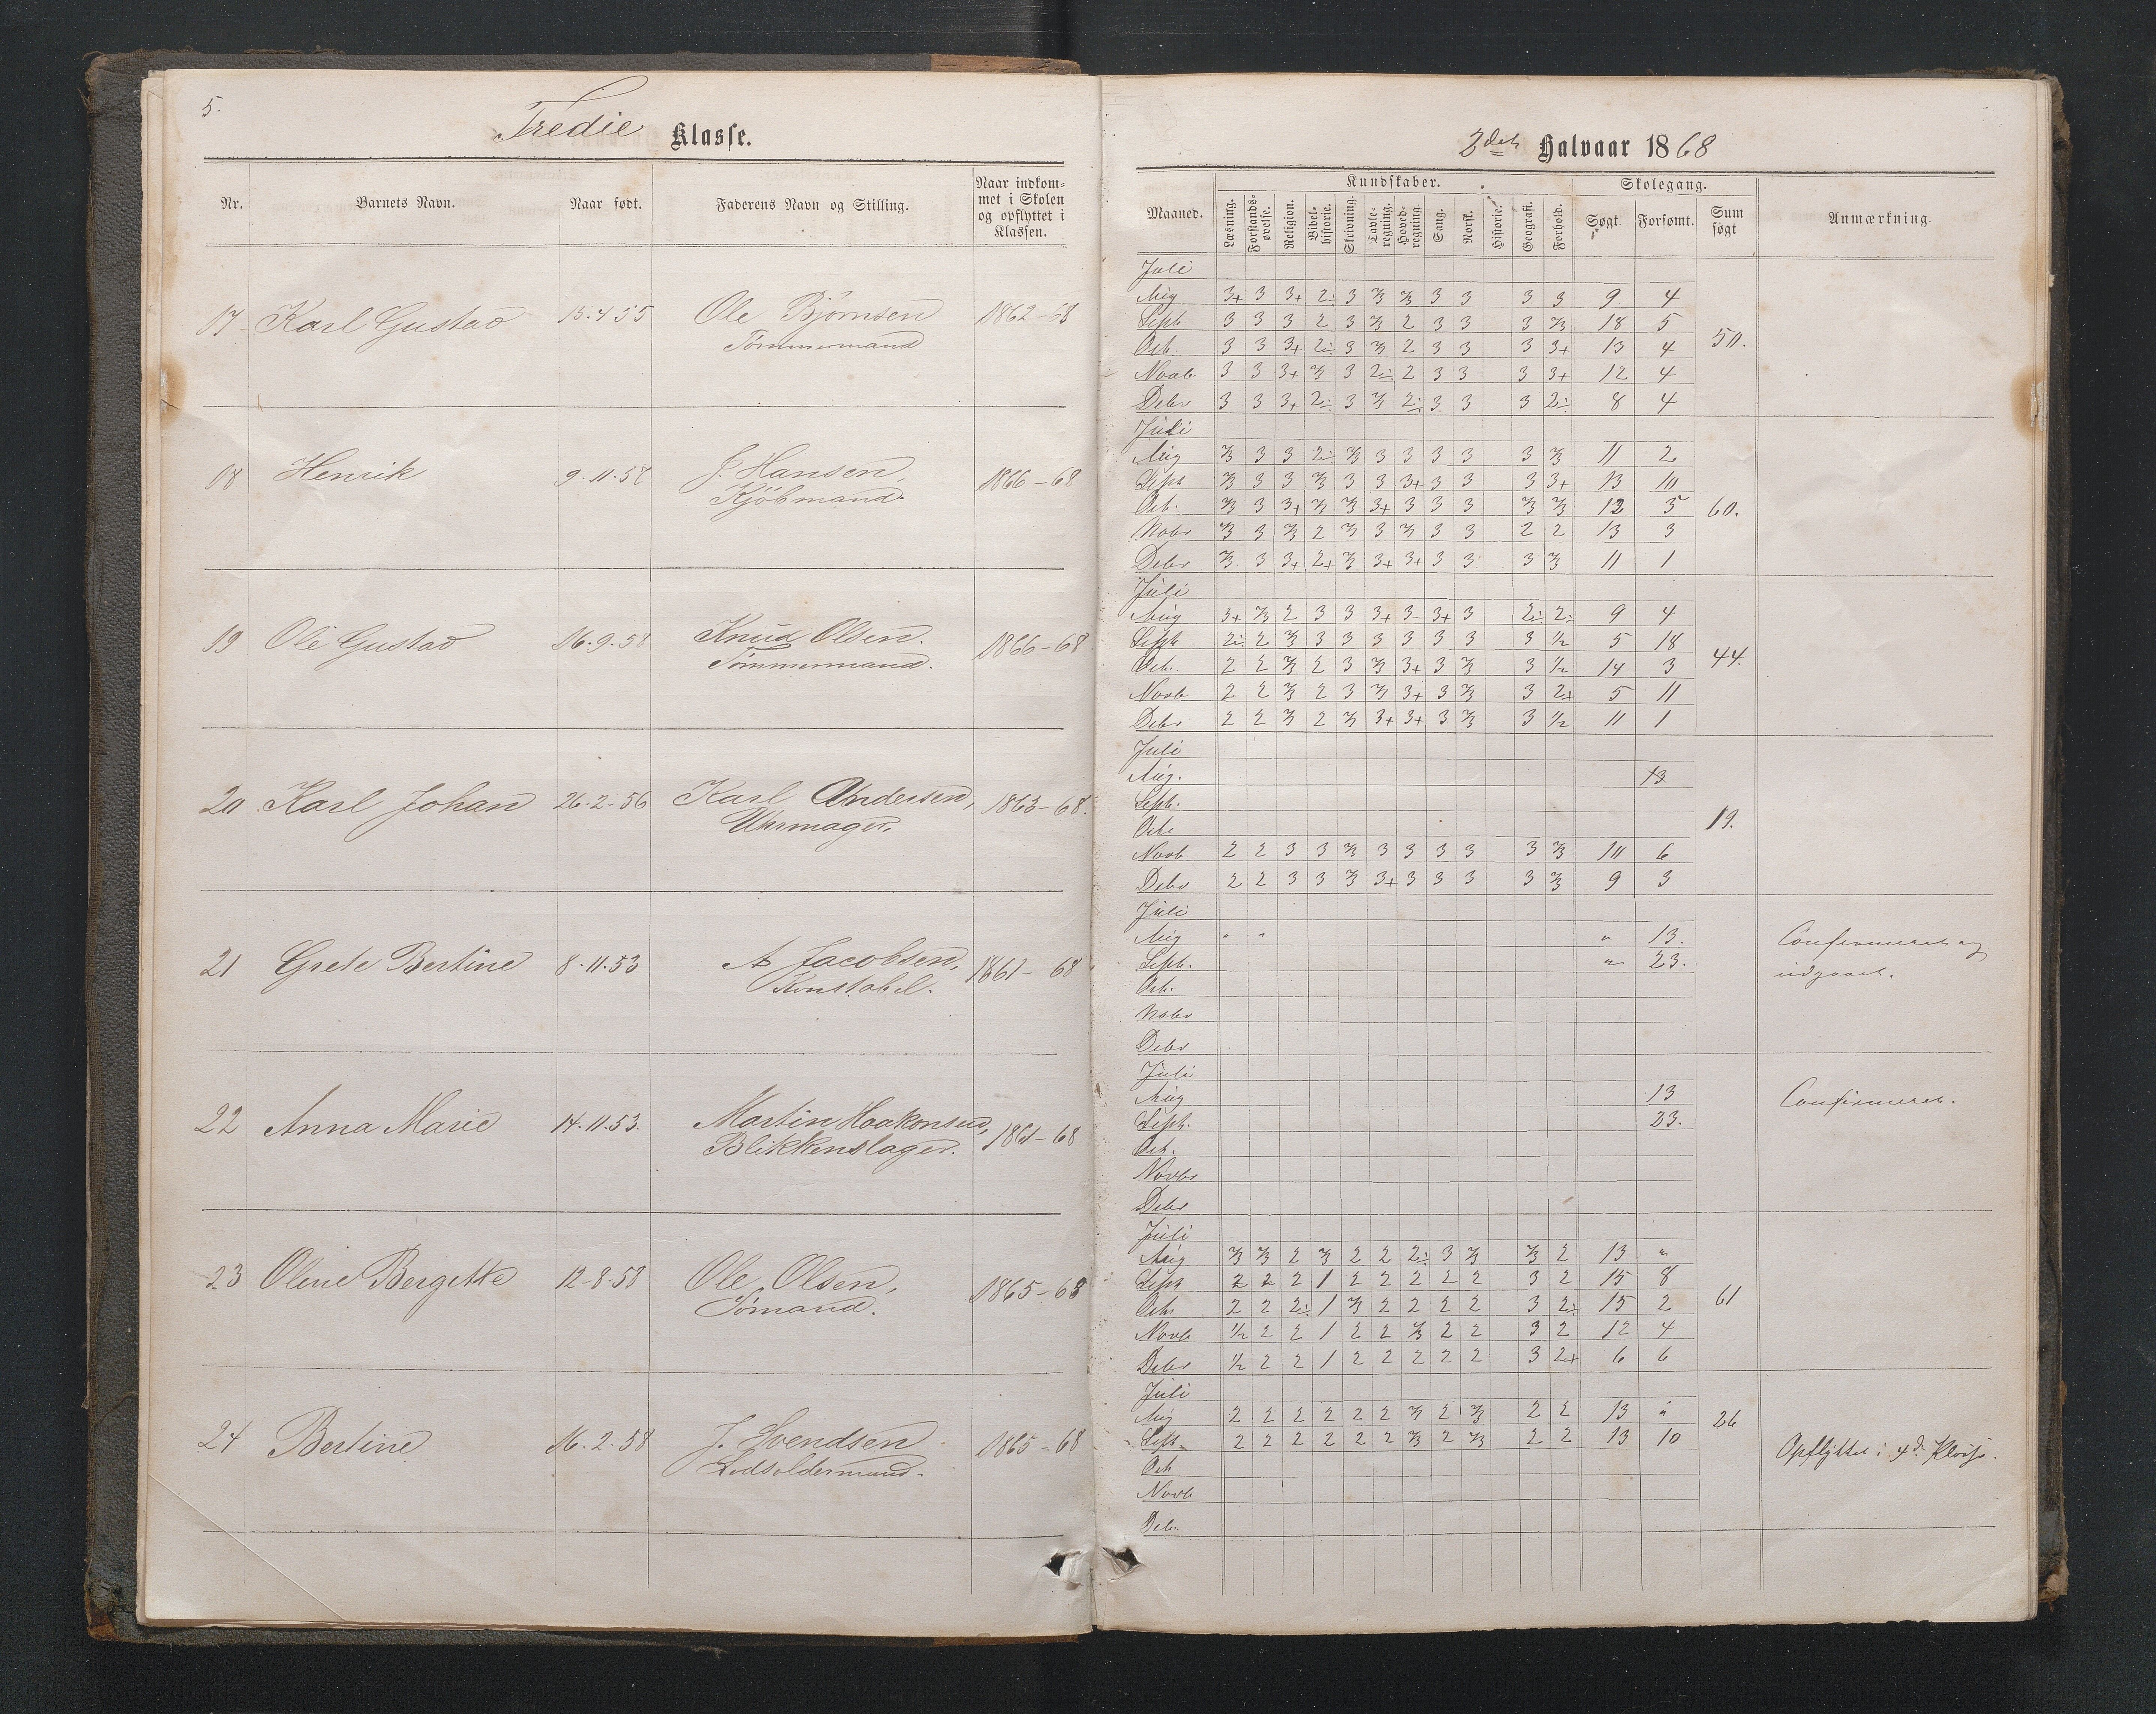 5.
Tredie Klasse.
Nr. Barnets Navn. Naar født. Faderens Navn og Stilling. Naar indkom-
met i Skolen
og opflyttet i
Klassen.
17 Karl Gustav 13.4 55 Ole Bjørnsen 1862-68
Tømmermand
18 Henrik 9.11.58 J. Hansen, 1866-68
Kjöbmand
19 Ole Gustav 16.9.58 Knud Olsen. 1866-68
Tømmermand.
20 Karl Johan 26-2-56 Karl Andersen, 1863-68.
Uhrmager.
21 Grete Bertine 8.11.53 A Jacobsen, 1861-68
Konstabel.
22 Anna Marie 14.11.53. Martin Haakonsen, 1861-68
Blikkenslager.
23 Oline Bergitte 12-8.58 Ole Olsen, 1865-68
Sømand.
24 Bertine 16.2.58 J. Svendsen 1865-68
Lodsoldermand.
2det Halvaar 1868
Maaned. Kundskaber. Skolegang. Sum
søgt Anmærkning.
Læsning. Forstands-
øvelse. Religion. Bibel-
historie. Skrivning. Tavle-
regning. Hoved-
regning. Sang. Norsk. Historie. Geografi. Forhold. Søgt. Forsømt.
Juli
Aug 3+ 3 3+ 2÷ 3 ⅔ ⅔ 3 3 3 3 9 4
Septb 3 3 3 2 3 ⅔ 2 3 3 3 ⅔ 18 5
Octb. 3 3 3+ 2÷ 3 ⅔ 2 3 3 3 3+ 13 4 50.
Novb. 3 3 3+ ⅔ 3 2÷ 2 3 3 3 3+ 12 4
Debr 3 3 3+ 2÷ 3 ⅔ 2÷ 3 3 3 2÷ 8 4
Juli
Aug ⅔ 3 3 2÷ ⅔ 3 3 3 3 3 ⅔ 11 2
Sept ⅔ 3 3 ⅔ 3 3 3+ 3 3 3 3+ 13 10
Octb. ⅔ 3 3+ ⅔ ⅔ 3+ 3 3 3 ⅔ ⅔ 12 5 60.
Nobr ⅔ 3 ⅔ 2 ⅔ 3 ⅔ 3 3 2 2 13 3
Debr ⅔ 3 3+ 2+ ⅔ 3+ 3+ 3 3 3 ⅔ 11 1
Juli
Aug 3+ ⅔ 2 3 3 3+ 3 3+ 3 2÷ 2÷ 9 4
Sept 2÷ 2 ⅔ 3 3 3 3 3 3 3 ½ 5 18
Octb. 2 2 ⅔ 2 3 ⅔ 3+ 3 ⅔ 3 ½ 14 3 44.
Novb 2 2 ⅔ 2 3 ⅔ 3+ 3 ⅔ 3 2+ 5 11
Debr 2 2 ⅔ 2 ⅔ 3+ 3+ 3 ⅔ 3 ½ 11 1
Juli
Aug. 13
Septb.
Octb 19.
Novb 2 2 3 3 ⅔ 3 3 3 3 3 ⅔ 10 6
Debr 2 2 3 3 ⅔ 3+ 3 3 3 3 ⅔ 9 3
Juli
Aug " " " 13. Confirmeret og
Septb. " 23. udgaaet.
Octb.
Nobr
Debr
Juli
Aug 13 Confirmeret.
Septb. 23.
Octb.
Novbr
Debr
Juli
Aug ⅔ ⅔ 2 ⅔ 2 2 2÷ 3 ⅔ ⅔ 2 13 "
Sept 2 2 2 1 2 2 2 2 2 3 2 15 8
Octb 2 2 2÷ 1 ⅔ 2 2 2 2 3 2÷ 15 2 61
Novb ½ 2 2 1 2 2 ⅔ 2 2 3 2 12 4
Debr ½ 2 2 1 2 2 2 2 2 3 2+ 6 6
Juli
Aug 2 2 2 2 2 2 ⅔ 2 ⅔ 2 2 13 " 26
Sept 2 2 2 2 2 2 ⅔ 2 ⅔ 2 2 13 10 Opflyttet i 4de Klasse.
Octb
Novb
Debr